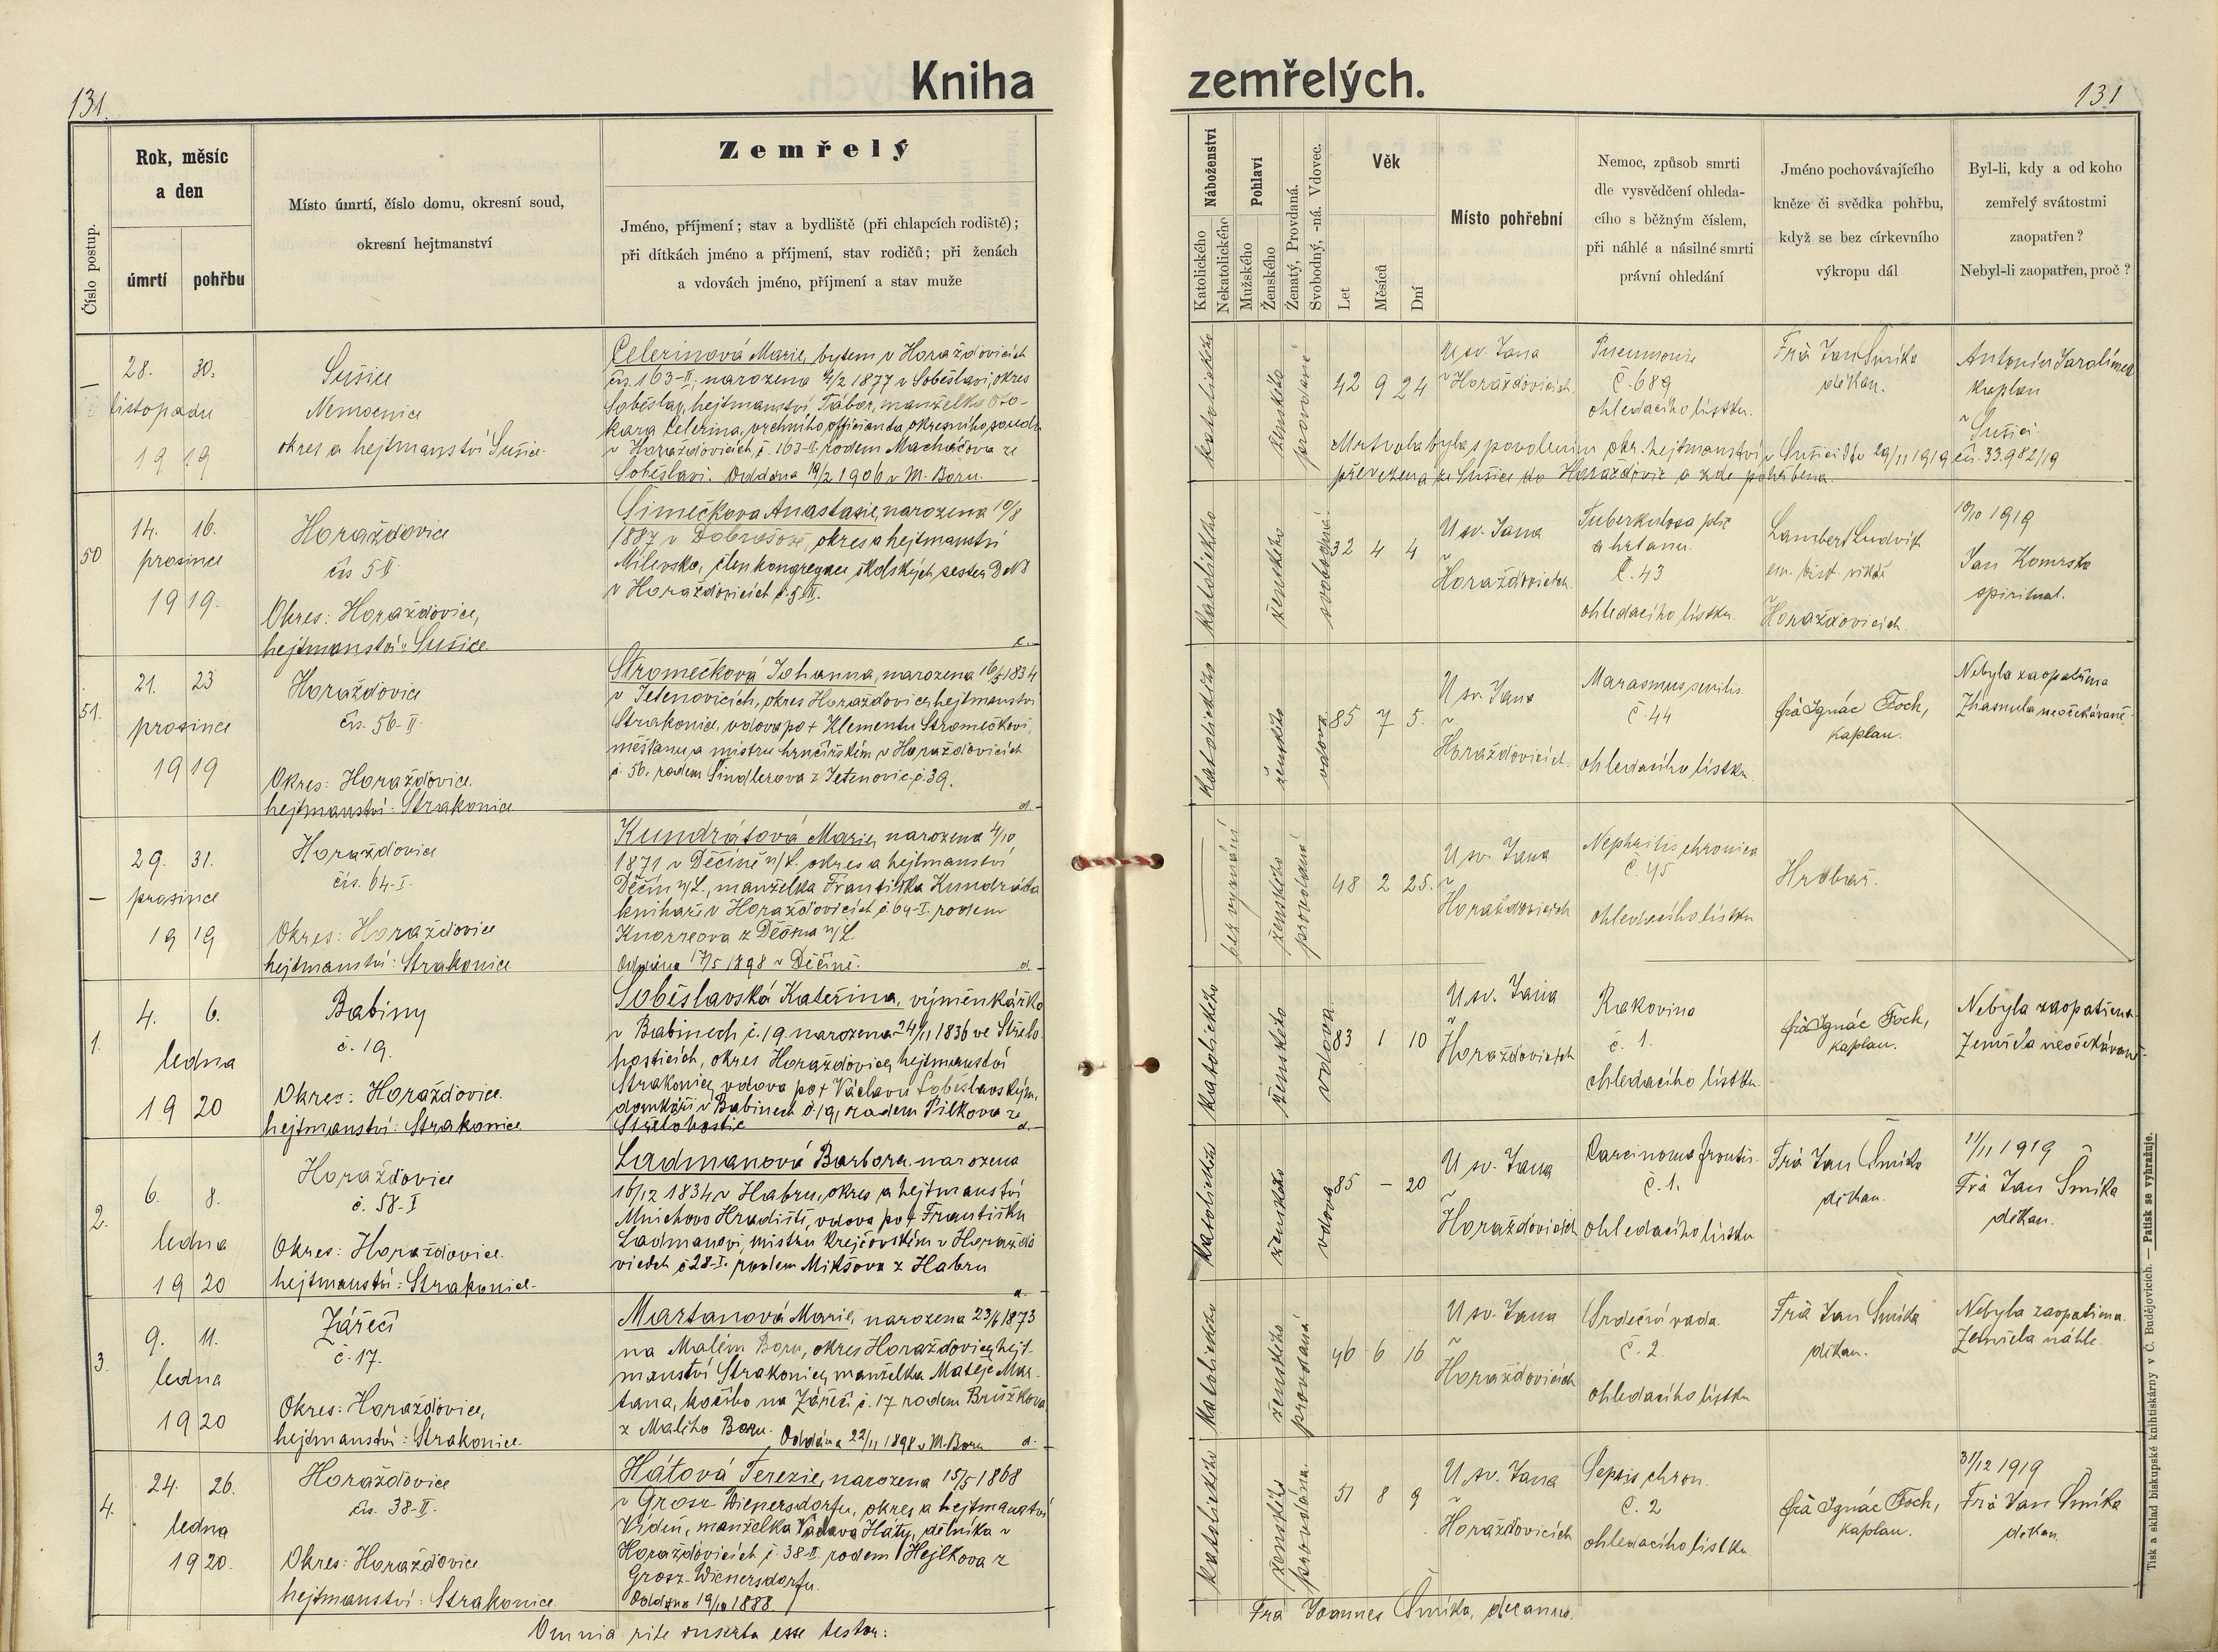 Kniha zemřelých.
131.
131
Číslo postup.
Rok, měsíc
a den
úmrtí
pohřbu
Místo úmrtí, číslo domu, okresní soud,
okresní hejtmanství
Zemřelý
Jméno, příjmení; stav a bydliště (při chlapcích rodiště);
při dítkách jméno a příjmení, stav rodičů; při ženách
a vdovách jméno, příjmení a stav muže
Náboženství
Katolického
Nekatolického
Pohlaví
Mužského
Ženského
Ženatý, Provdaná.
Svobodný, -ná. Vdovec.
Věk
Let
Měsíců
Dní
Místo pohřební
Nemoc, způsob smrti
dle vysvědčení ohleda-
cího s běžným číslem,
při náhlé a násilné smrti
právní ohledání
Jméno pochovávajícího
kněze či svědka pohřbu,
když se bez církevního
výkropu dál
Byl-li, kdy a od koho
zemřelý svátostmi
zaopatřen?
Nebyl-li zaopatřen, proč?
28. 30.
listopadu
19 19
Sušice
Nemocnice
okres a hejtmanství Sušice
Celerinová Marie, bytem v Horažďovicích
čís. 163-II, narozena 4/2 1877 v Soběslavi, okres
Soběslav, hejtmanství Tábor, manželka Oto-
kara Celerina, vrchního officianta okresního soudu
v Horažďovicích, č. 163-II. rodem Macháčova ze
Soběslavi. Oddána 19/2 1906 v M. Boru.
katolického
ženského
provdaná
42 9 24
U sv. Jana
v Horažďovicích
Pneumonie
č. 689
ohledacího lístku.
Frà Jan Šmíka
děkan.
Antonín Jarolímek
kaplan
v
Sušici
Mrtvola byla s povolením okr. hejtmanství v Sušici dto 29/11 1919 čís. 33.982/19
převezena ze Sušice do Horažďovic a zde pohřbena.
50
14. 16.
prosince
19 19.
Horažďovice
čís 5 II
Okres: Horažďovice,
hejtmanství: Sušice
Šimečkova Anastasie, narozena 10/8
1887 v Dobrošově, okres a hejtmanství
Milevsko, člen kongregace školských sester D N
v Horažďovicích č. 5 II.
katolického
ženského
svobodná
32 4 4
U sv. Jana
v
Horažďovicích.
Tuberkulosa plic
a hrtanu.
č. 43
ohledacího lístku
Lambert Ludvík
Horažďovicích.
10/10 1919
Jan Komrska
spirituál.
51.
21. 23
prosince
19 19
Horažďovice
čís. 56-II.
Okres: Horažďovice.
hejtmanství: Strakonice
Stromečková Johanna, narozena 16/5 1834
v Jetenovicích, okres Horažďovice, hejtmanství
Strakonice, vdova po † Klementu Stromečkovi,
měšťanu a mistru hrnčířském v Horažďovicích
č. 56. rodem Šindlerova z Jetenovic č. 39.
d.
katolického
ženského
vdova
85 7 5.
U sv. Jana
v
Horažďovicích.
Marasmus senilis.
č. 44
ohledacího lístku
frà Ignác Foch,
kaplan.
Nebyla zaopatřena
Zhasnula neočekávaně.
—
29. 31.
prosince
19 19
Horažďovice
čís. 64-I.
Okres: Horažďovice
hejtmanství: Strakonice.
Kundrátová Marie, narozena 4/10
1871 v Děčíně n/L. okres a hejtmanství
Děčín n/L., manželka Františka Kundráta
knihaře v Horažďovicích č. 64-I. rodem
Knorreova z Děčína n/L
Oddána 17/5 1898 v Děčíně.
d.
bez vyznání
ženského
provdaná
48 2 25.
U sv. Jana
v
Horažďovicích
Nephritis chronica
č. 45
ohledacího lístku
Hrobař.
1.
4. 6.
ledna
19 20
Babiny
č. 19.
Okres: Horažďovice.
hejtmanství: Strakonice.
Soběslavská Kateřina, výměnkářka
v Babinech č. 19. narozena 24/11 1836 ve Střelo-
hosticích, okres Horažďovice, hejtmanství
Strakonice, vdova po † Václavu Soběslavském,
domkáři v Babinech č. 19, rodem Pilkova ze
Střelohostic
d.
katolického
ženského
vdova
83 1 10
U sv. Jana
v
Horažďovicích
Rakovina
č. 1.
ohledacího lístku.
frà Ignác Foch,
kaplan.
Nebyla zaopatřena.
Zemřela neočekávaně.
2.
6. 8.
ledna
19 20
Horažďovice
č. 58-I
Okres: Horažďovice.
hejtmanství: Strakonice.
Ladmanová Barbora, narozena
16/12 1834 v Habru, okres a hejtmanství
Mnichovo Hradiště, vdova po † Františku
Ladmanovi, mistru krejčovském v Horažďo
vicích č 28-I. rodem Mikšova z Habru
katolického
ženského
vdova
85 — 20
U sv. Jana
v
Horažďovicích
Carcinoma frontis.
č. 1.
ohledacího lístku
Frà Jan Šmíka
děkan.
11/11 1919
Frà Jan Šmíka
děkan.
3.
9. 11.
ledna
19 20
Zářečí
č. 17.
Okres: Horažďovice,
hejtmanství: Strakonice.
Martanová Marie, narozena 23/6 1873
na Malém Boru, okres Horažďovice, hejt-
manství Strakonice, manželka Matěje Mar-
tana, kočího na Zářečí č. 17 rodem Brůžkova
z Malého Boru. Oddána 22/11 1898 v M. Boru
d.
katolického
ženského
provdaná
46 6 16
U sv. Jana
v
Horažďovicích
Srdeční vada.
č. 2.
ohledacího lístku
Frà Jan Šmíka
děkan.
Nebyla zaopatřena.
Zemřela náhle.
4.
24. 26.
ledna
19 20.
Horažďovice
čís. 38-II.
Okres: Horažďovice
hejtmanství: Strakonice
Hátová Terezie, narozena 15/5 1868
v Grosz Wienersdorfu, okres a hejtmanství
Vídeň, manželka Václava Háty, dělníka v
Horažďovicích č. 38-II. rodem Hejlkova z
Grosz-Wienersdorfu.
Oddána 19/10 1888.
katolického
ženského
provdána.
51 8 9
U sv. Jana
v
Horažďovicích
Sepsis chron.
č. 2
ohledacího lístku.
frà Ignác Foch,
kaplan.
31/12 1919
Frà Jan Šmíka
děkan
Omnia rite inserta esse testor:
Frà Joannes Šmíka, decanus.
Tisk a sklad biskupské knihtiskárny v Č. Budějovicích. — Patisk se vyhražuje.